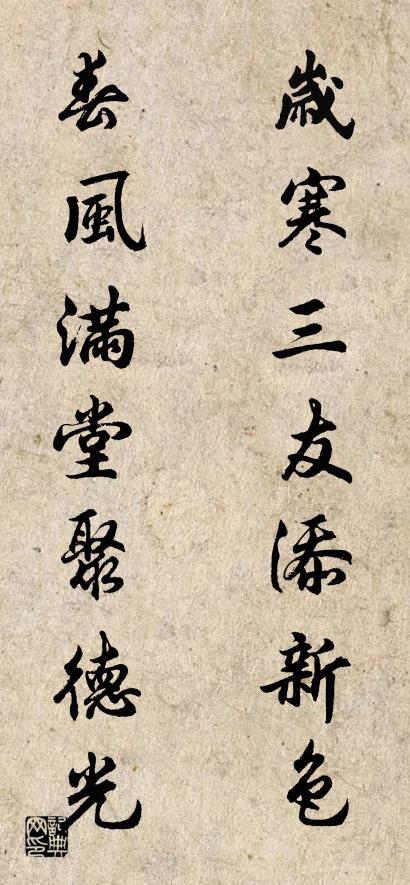 歲寒三友添新色
春風滿堂聚德光